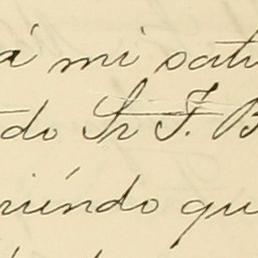 á mi satis
do Sr F. B
riéndo que